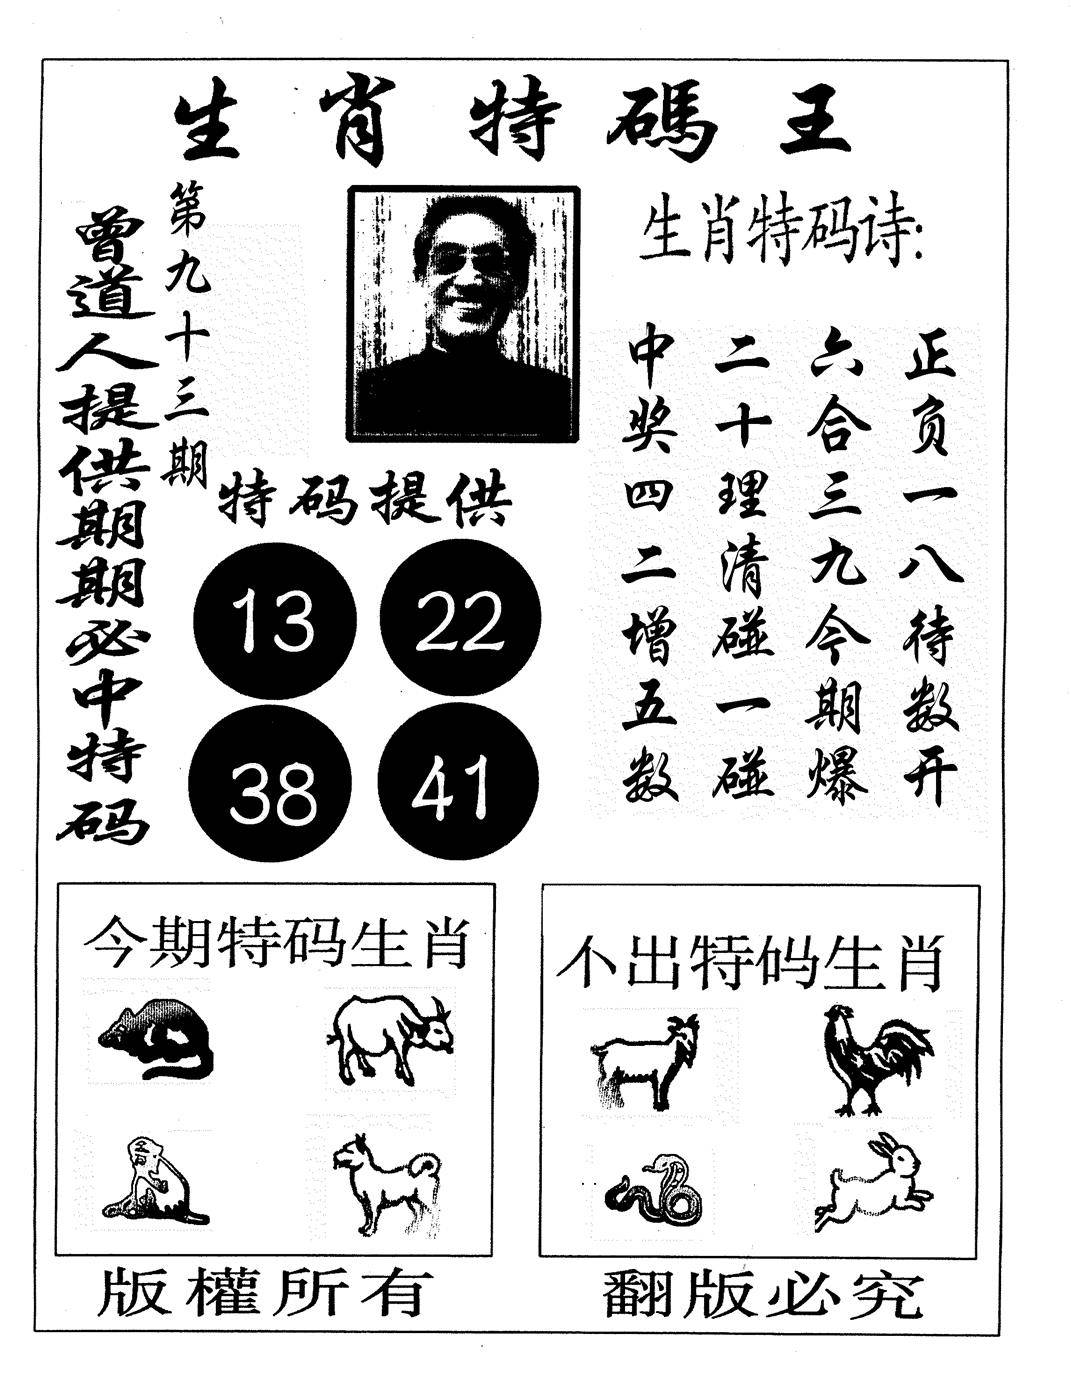 生肖特碼王
第九十三期
曾道人提供期期必中特码
生肖特码诗:
正负一八待数开
六合三九今期爆
二十理清碰一碰
中奖四二增五数
特码提供
13 22
38 41
今期特码生肖
不出特码生肖
版權所有
翻版必究